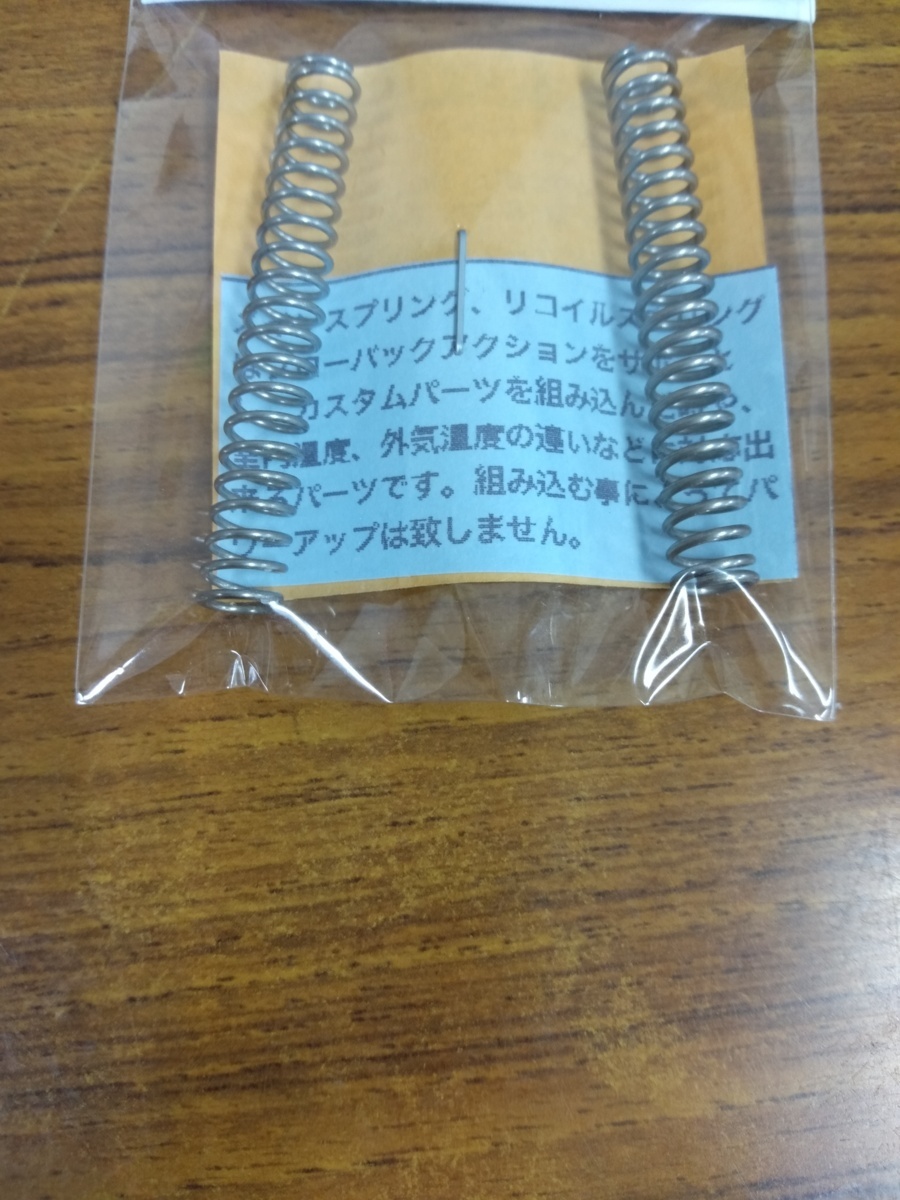 スプリング、リコイルス ング
ーバックアクションをサ
カスタムパーツを組み込ん 、
温度、外気温度の違いなど 出
パーツです。組み込む事に パ
ーアップは致しません。